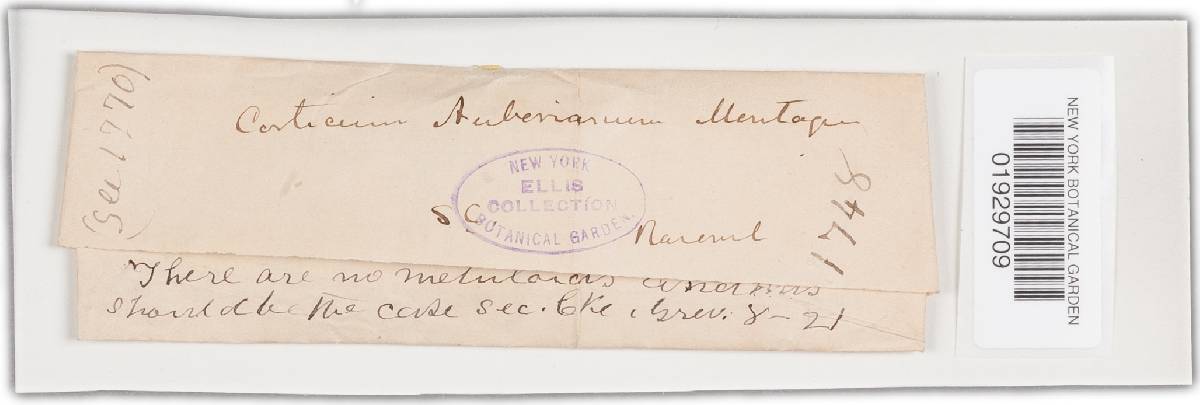 (See 1770)
Corticium Auberianum Montagne
NEW YORK
ELLIS
COLLECTION
BOTANICAL GARDEN.
S C
Ravenel
1748
There are no metuloids
should be the case sec. Cke. Grev. 8-21
NEW YORK BOTANICAL GARDEN
01929709